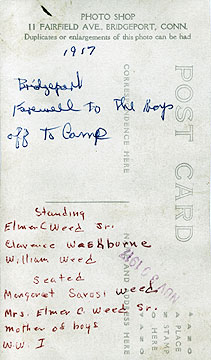 PHOTO SHOP
11 FAIRFIELD AVE., BRIDGEPORT, CONN.
Duplicates or enlargements of this photo can be had
1917
Bridgeport
Farewell To The Boys
off To Camp
CORRESPONDENCE HERE
POST CARD
Standing
Elmer C Weed Sr.
Clarence Washburne
William Weed
Seated
Margaret Sarosi Weed
Mrs. Elmer C Weed Sr.
mother of boys
W.W. I
NAME AND ADDRESS HERE
PLACE
STAMP
HERE